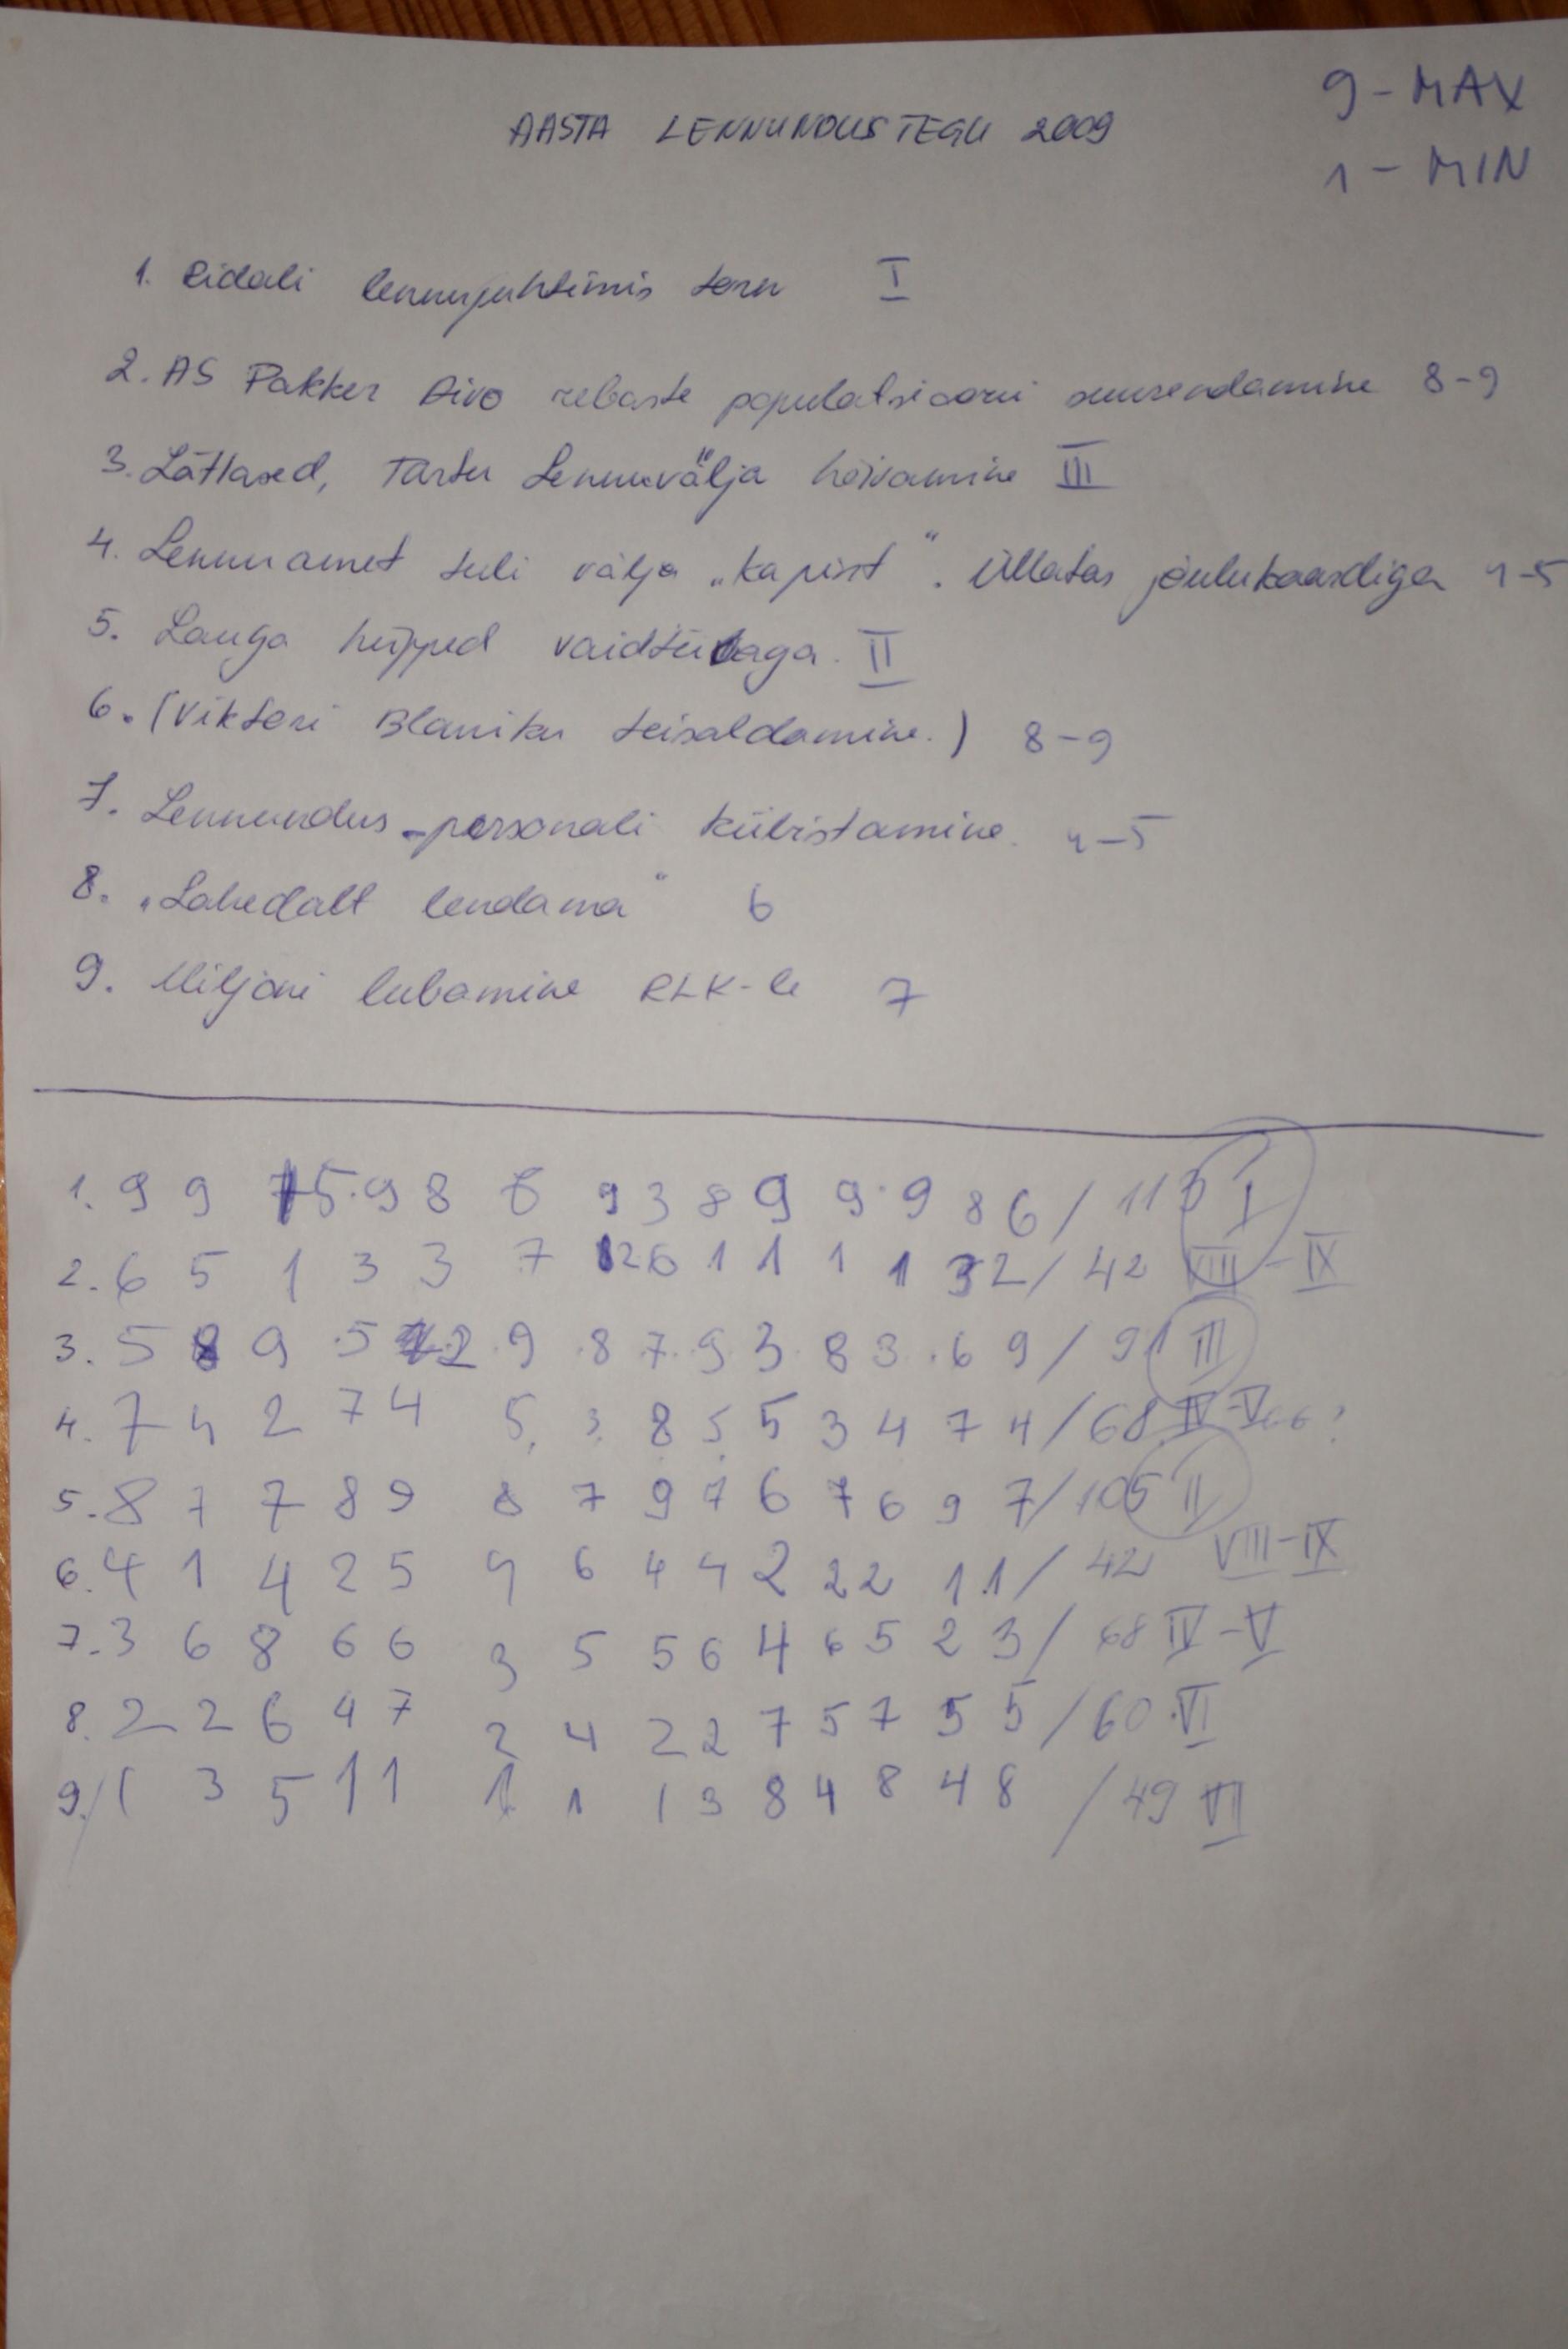 9 - MAX
AASTA LENNUNDUSTEGU 2009
1 - MIN
1. Ridali lennujuhtimis torn I
2. AS Pakker Aivo rebaste populatsiooni suurendamine 8-9
3. Lätlased, Tartu Lennuvälja hõivamine III
4. Lennuamet tuli välja „kapist". Üllatas jõulukaardiga 4-5
5. Lauga hüpped vaidtüdaga. II
6. (Viktori Blaniku teisaldamine.) 8-9
7. Lennundus-personali küüristamine. 4-5
8. „Lahedalt lendama" 6
9. Miljoni lubamine RLK-le 7
1. 9 9 5 . 9 8 8 9 3 8 9 9 . 9 8 6 / 113 I
2. 6 5 1 3 3 7 2 6 1 1 1 1 3 2 / 42 VIII - IX
3. 5 8 9 . 5 2 . 9 . 8 7 . 9 3 . 8 3 . 6 9 / 91 III
4. 7 4 2 7 4 5, 3, 8 5 5 3 4 7 4 / 68 IV-V 66?
5. 8 7 7 8 9 8 7 9 7 6 7 6 9 7 / 105 II
6. 4 1 4 2 5 4 6 4 4 2 2 2 1 1 / 42 VIII-IX
7. 3 6 8 6 6 3 5 5 6 4 6 5 2 3 / 68 IV - V
8. 2 2 6 4 7 2 4 2 2 7 5 7 5 5 / 60 . VI
9. / 1 3 5 1 1 1 1 1 3 8 4 8 4 8 / 49 VII